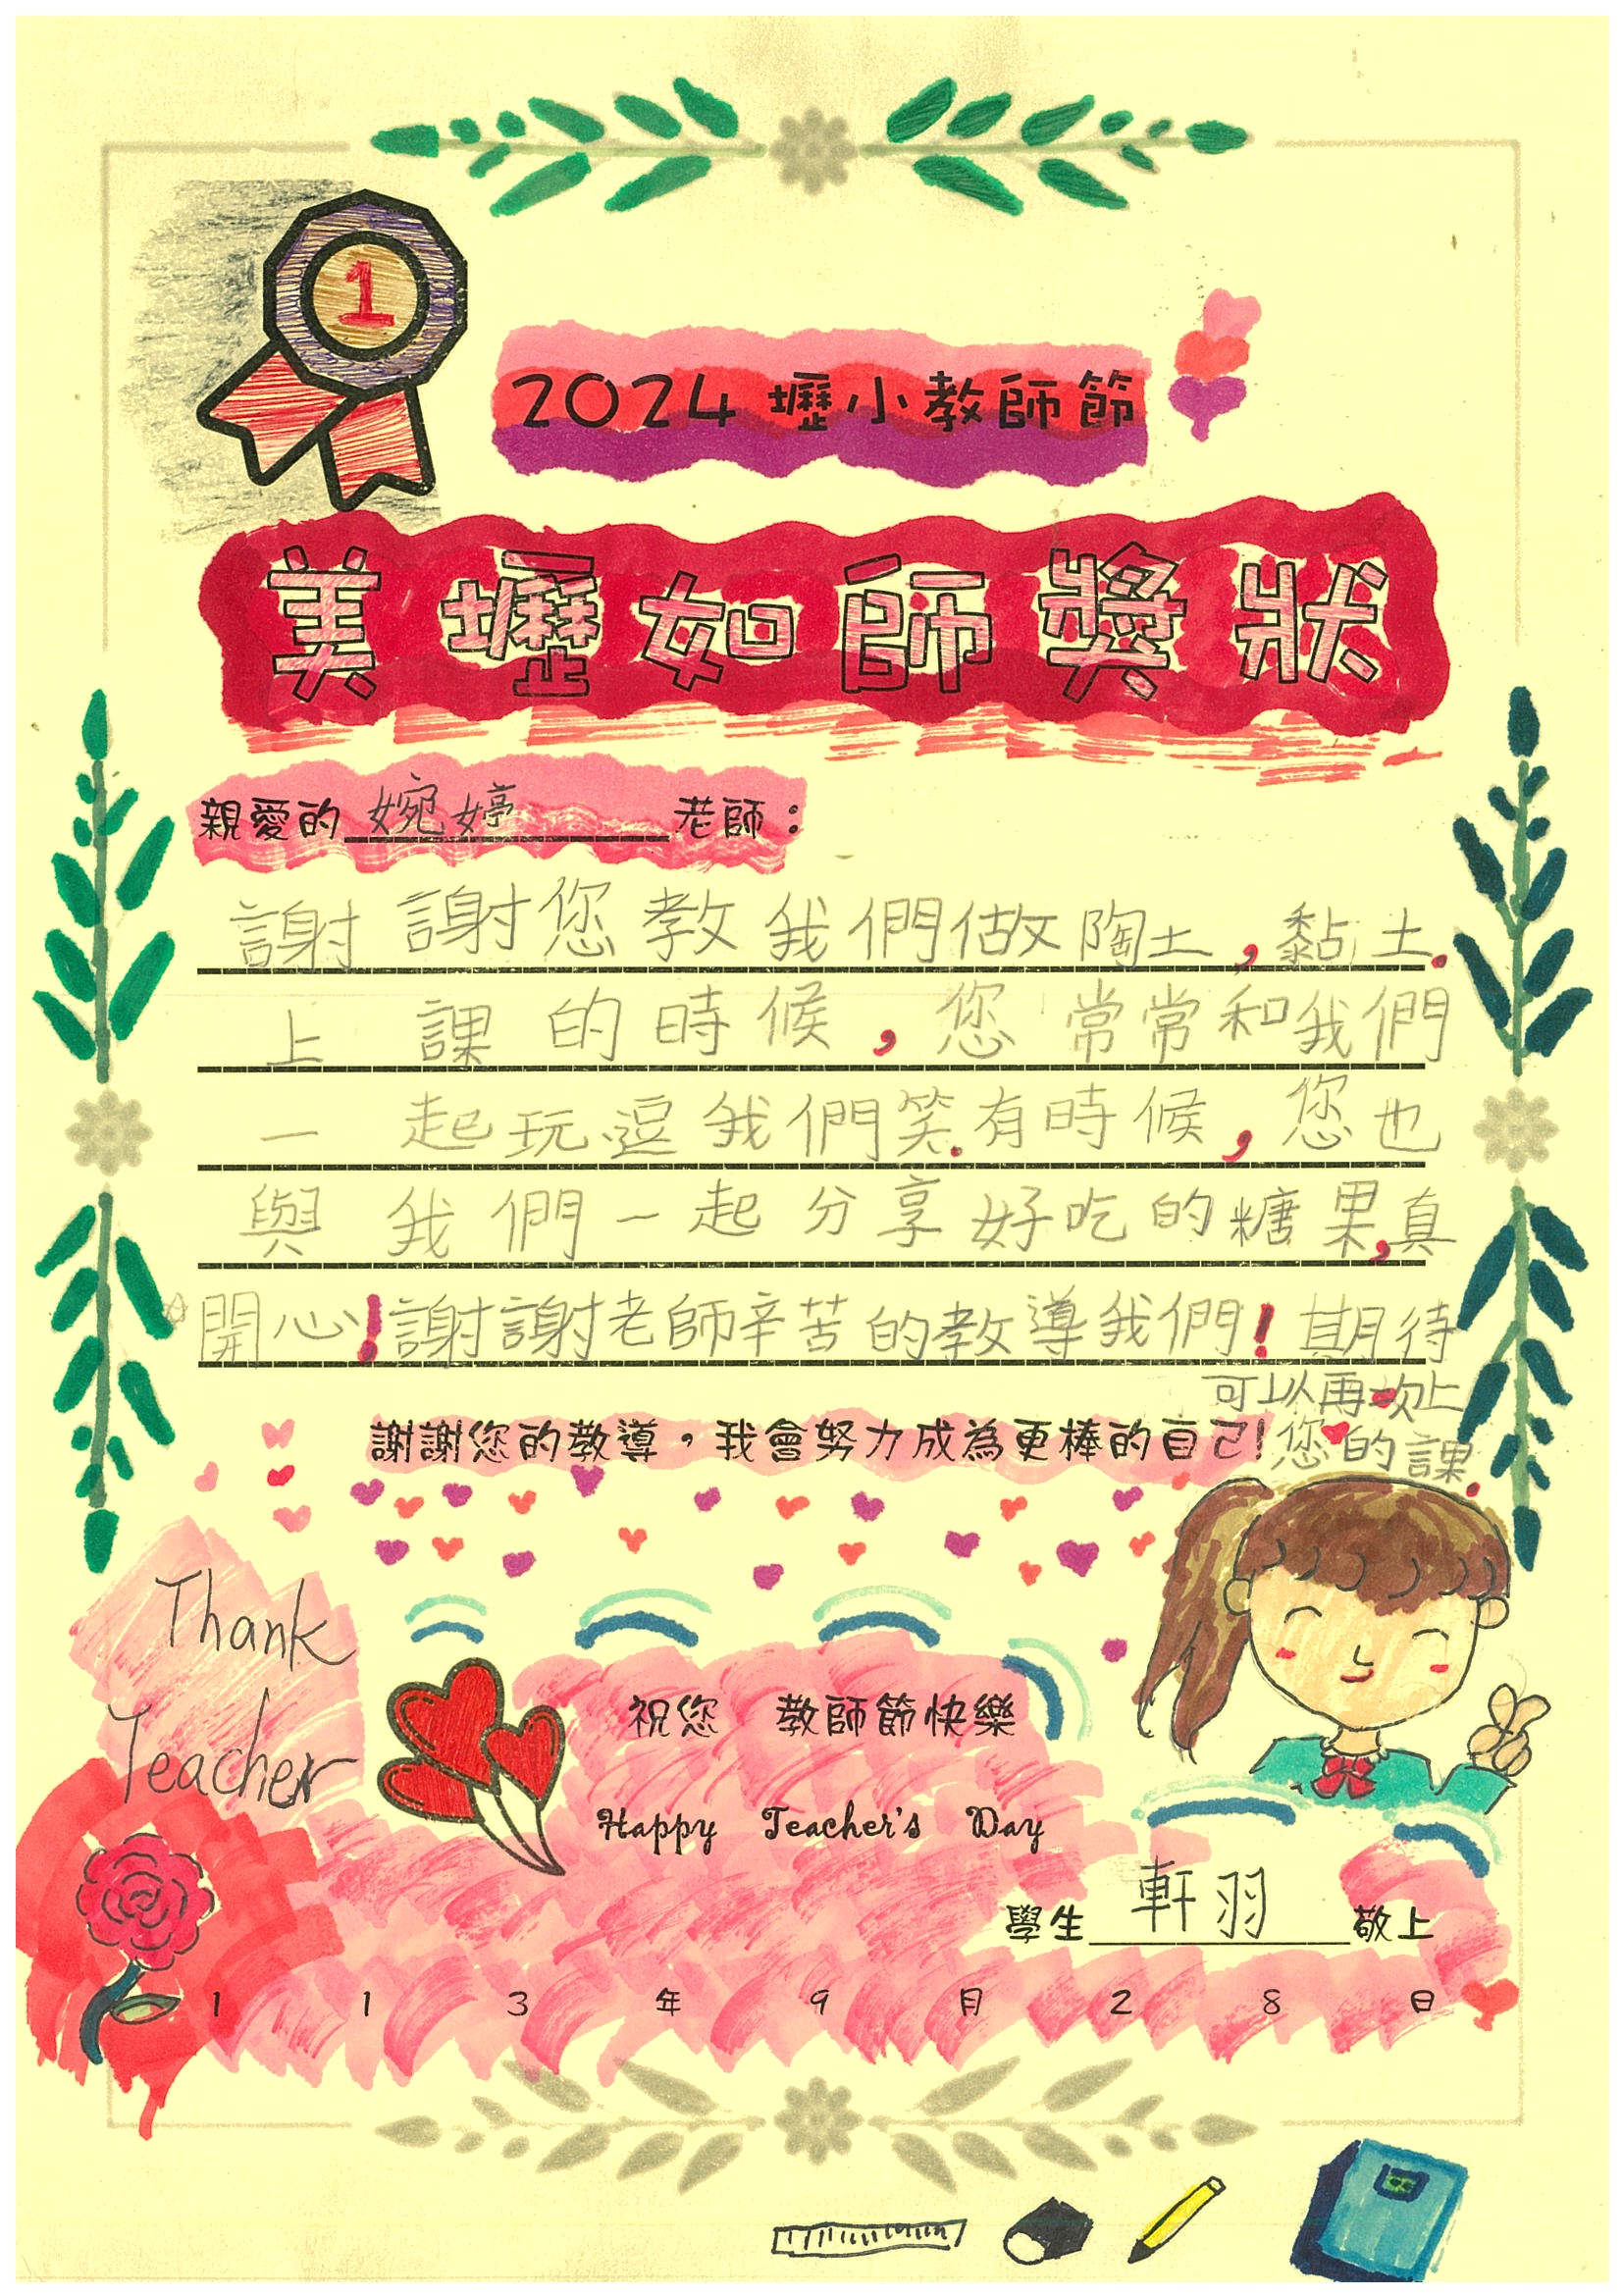 1
2024壢小教師節
美壢如師獎狀
親愛的婉婷老師：
謝謝您教我們做陶土,黏土.
上課的時候,您常常和我們
一起玩逗我們笑.有時候,您也
與我們一起分享好吃的糖果,真
開心!謝謝老師辛苦的教導我們!期待
可以再一次上
您的課.
謝謝您的教導，我會努力成為更棒的自己!
Thank
Teacher
祝您 教師節快樂
Happy Teacher's Day
學生軒羽敬上
113年9月28日